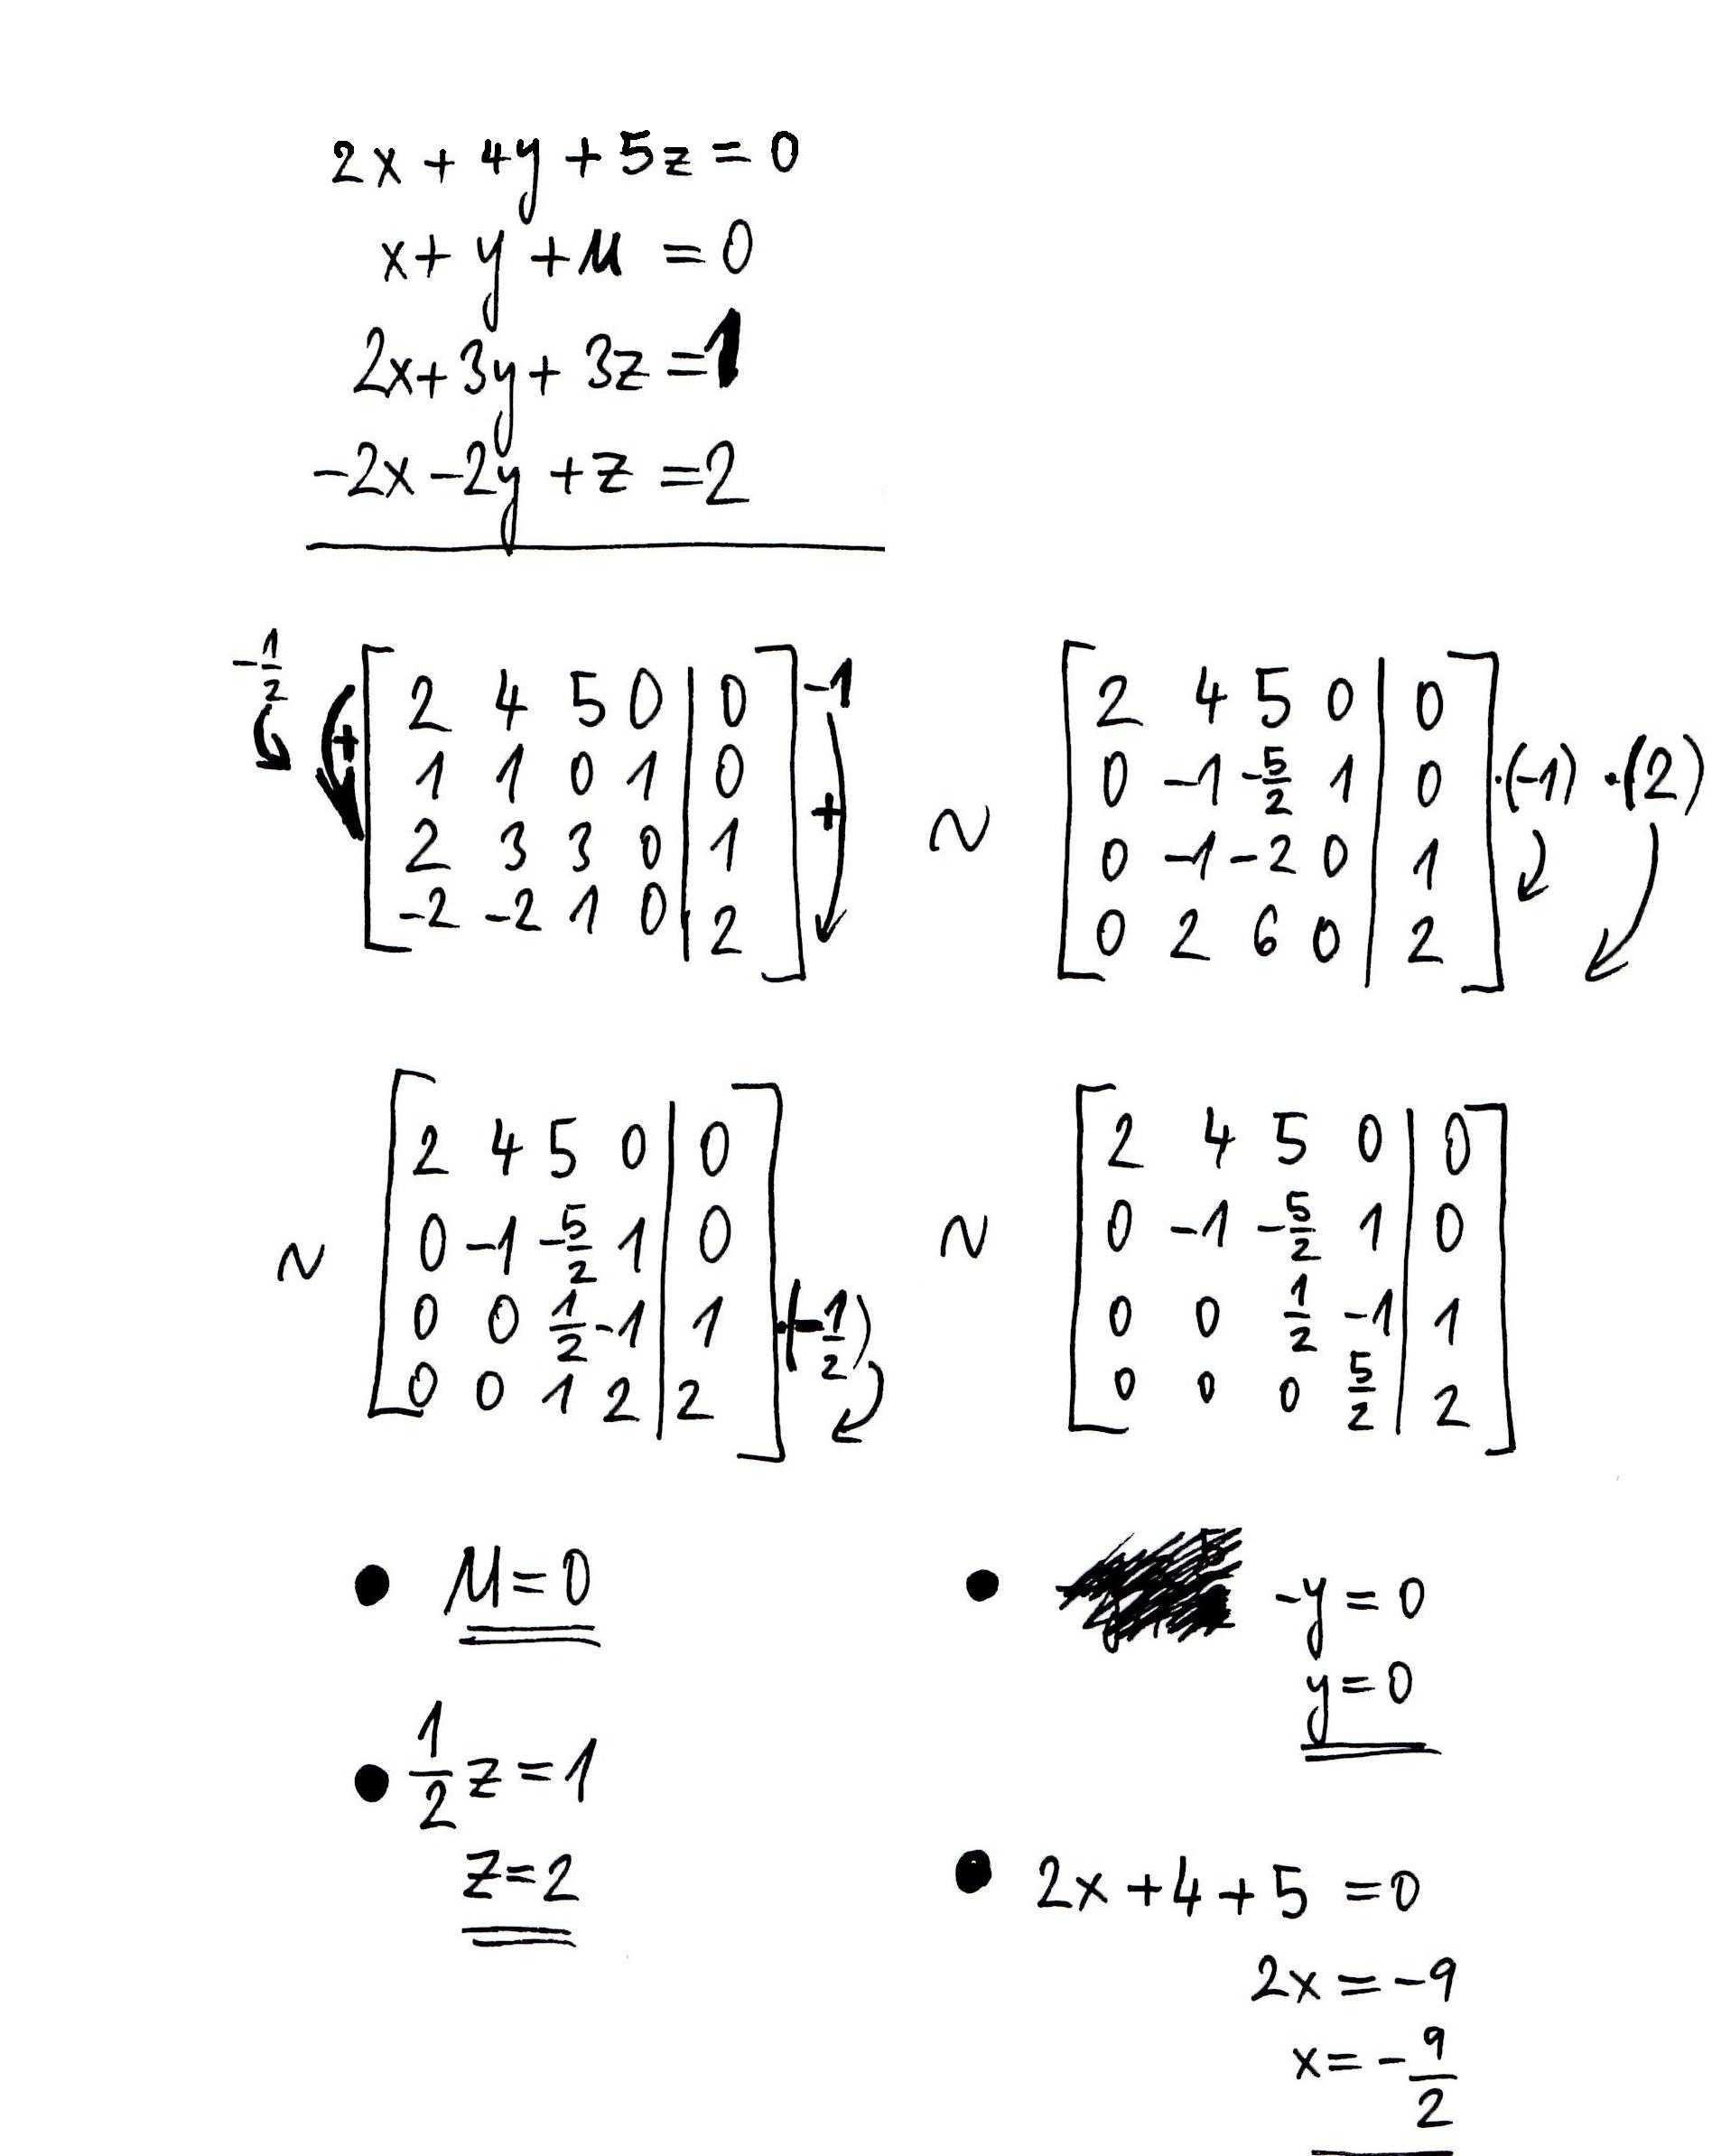 2x + 4y + 5z = 0
x + y + u = 0
2x + 3y + 3z = 1
-2x - 2y + z = 2
-1/2 + [ 2 4 5 0 | 0 ] -1
[ 1 1 0 1 | 0 ]
[ 2 3 3 0 | 1 ] +
[ -2 -2 1 0 | 2 ]
~ [ 2 4 5 0 | 0 ]
[ 0 -1 -5/2 1 | 0 ] ·(-1) ·(2)
[ 0 -1 -2 0 | 1 ]
[ 0 2 6 0 | 2 ]
~ [ 2 4 5 0 | 0 ]
[ 0 -1 -5/2 1 | 0 ]
[ 0 0 1/2 -1 | 1 ] ·(-1/2)
[ 0 0 1 2 | 2 ]
~ [ 2 4 5 0 | 0 ]
[ 0 -1 -5/2 1 | 0 ]
[ 0 0 1/2 -1 | 1 ]
[ 0 0 0 5/2 | 2 ]
• u = 0
• 1/2 z = 1
z = 2
• -y = 0
y = 0
• 2x + 4 + 5 = 0
2x = -9
x = -9/2